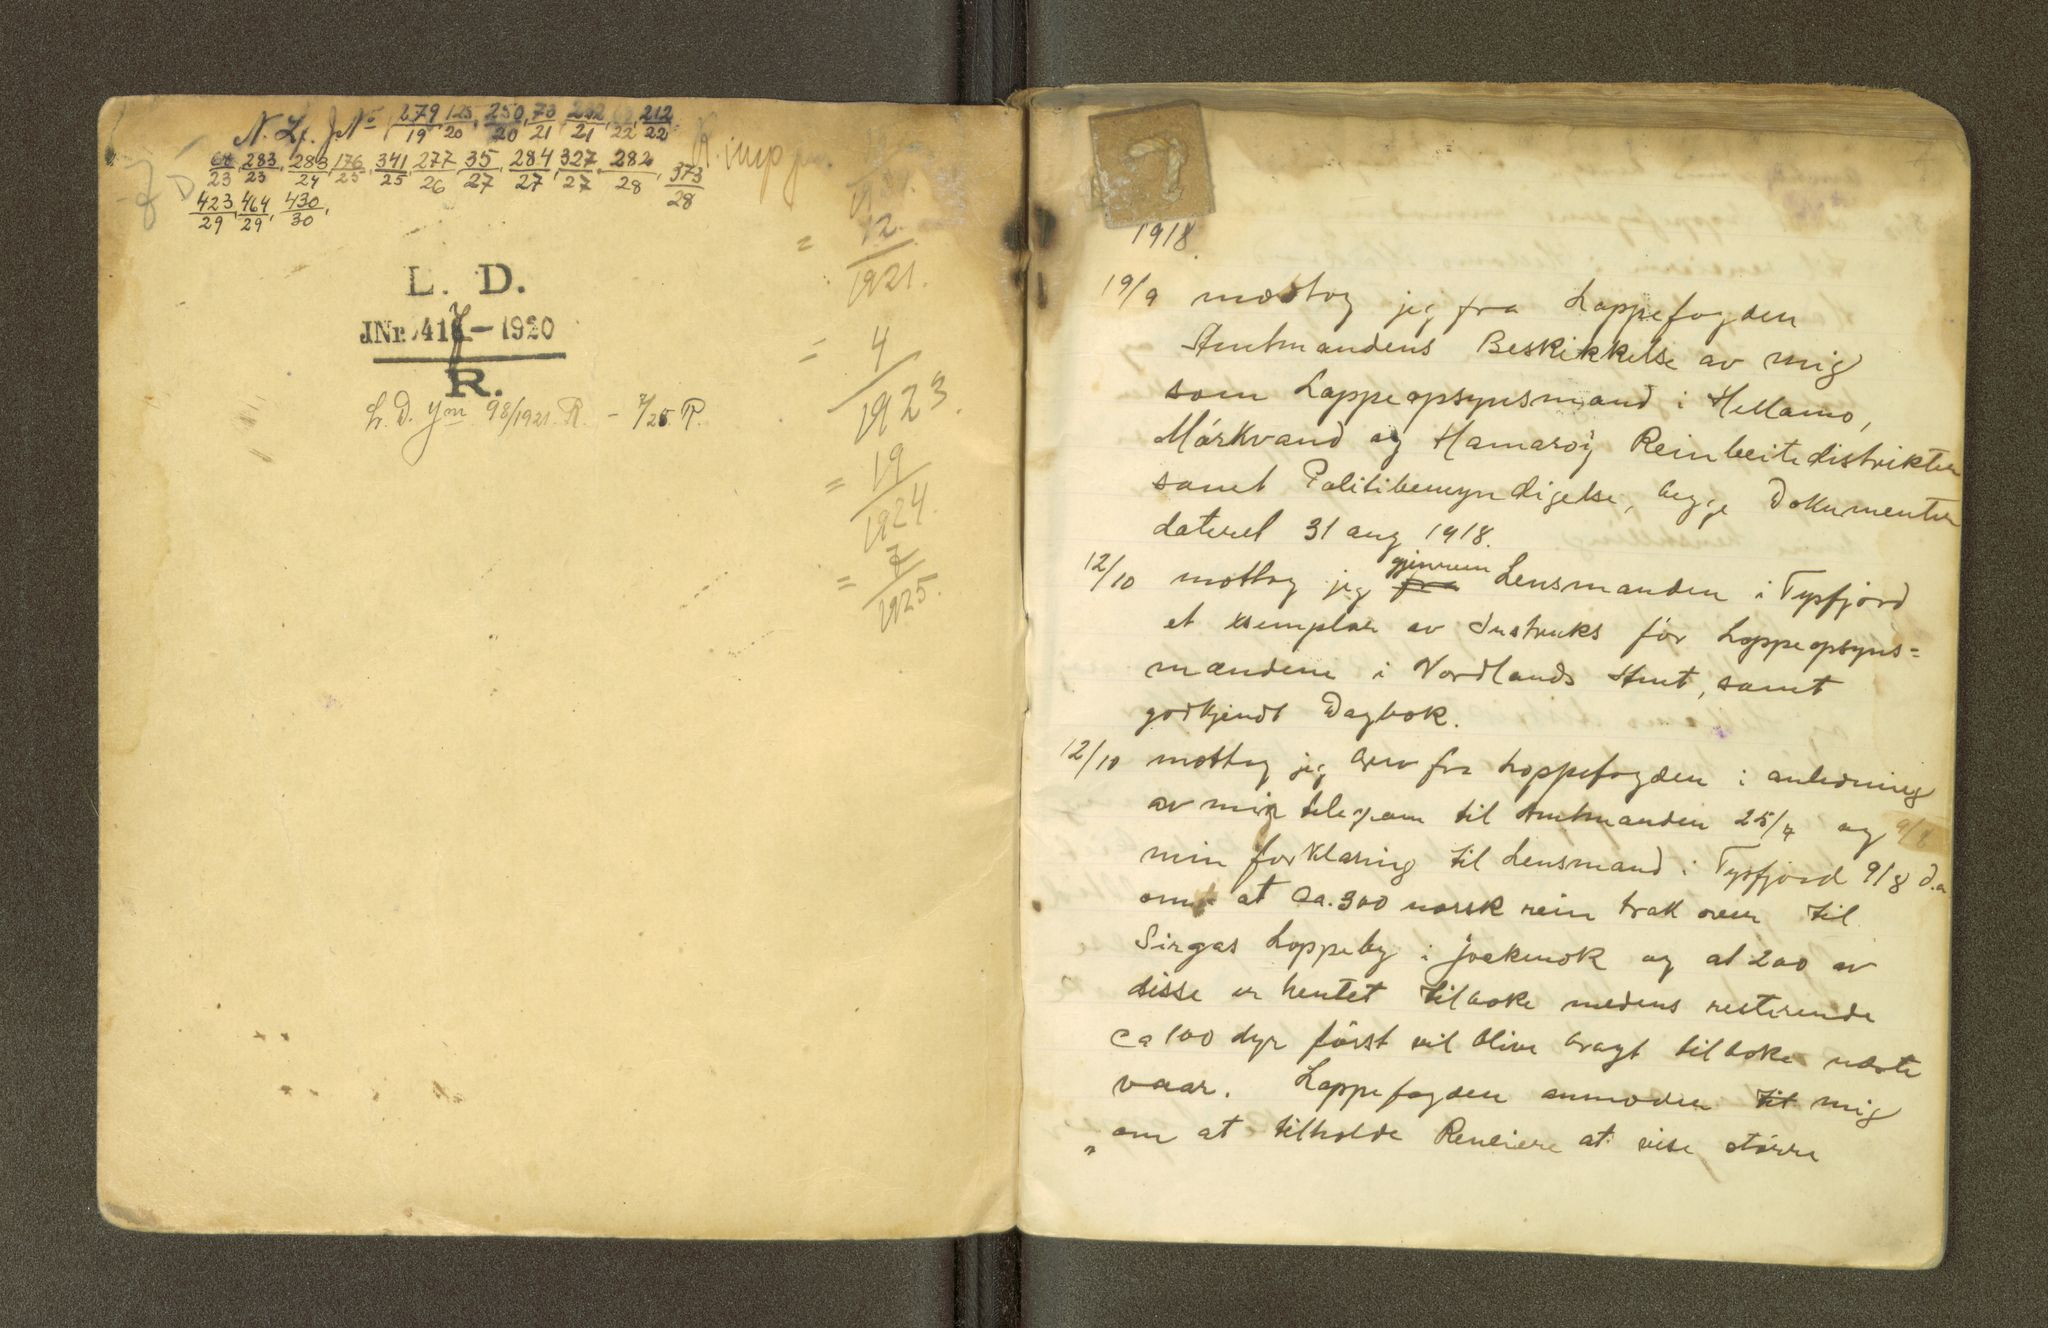 N. Lf. J.No 279/19, 125/20, 250/20, 73/21, 212/22
283/23, 283/24, 176/25, 341/25, 277/26, 35/27, 284/27, 327/27, 282/28, 373/28
423/29, 464/29, 430/30,
L. D.
JNr. 417 — 1920
R.
L. D. Jnr 98/1921. R. – 7/25 R.
= 12/1921.
= 4/1923.
= 19/1924.
= 7/1925.
1918.
19/9 modtog jeg fra Lappefogden
Amtmandens Beskikkelse av mig
som Lappeopsynsmand i Hellamo,
Mörkvand og Hamaröy Reinbeitedistrikter
samt Politibemyndigelse, begge Dokumenter
dateret 31 aug 1918.
12/10 mottog jeg fra gjennem Lensmanden i Tysfjord
et exemplar av Instruks för Lappeopsyns=
mændene i Nordlands Amt, samt
godkjendt Dagbok.
12/10 mottog jeg brev fra Lappefogden i anledning
av min telegram til Amtmanden 25/7 og 9/8
min forklaring til Lensmand i Tysfjord 9/8 d.a
om at Ca. 300 norsk rein trak over til
Sirgas Lappeby i Jockmok og at 200 av
disse er hentet tilbake medens resterende
Ca 100 dyr först vil blive bragt tilbake næste
vaar. Lappefogden anmoder til mig
om at tilholde Reneiere at vise större